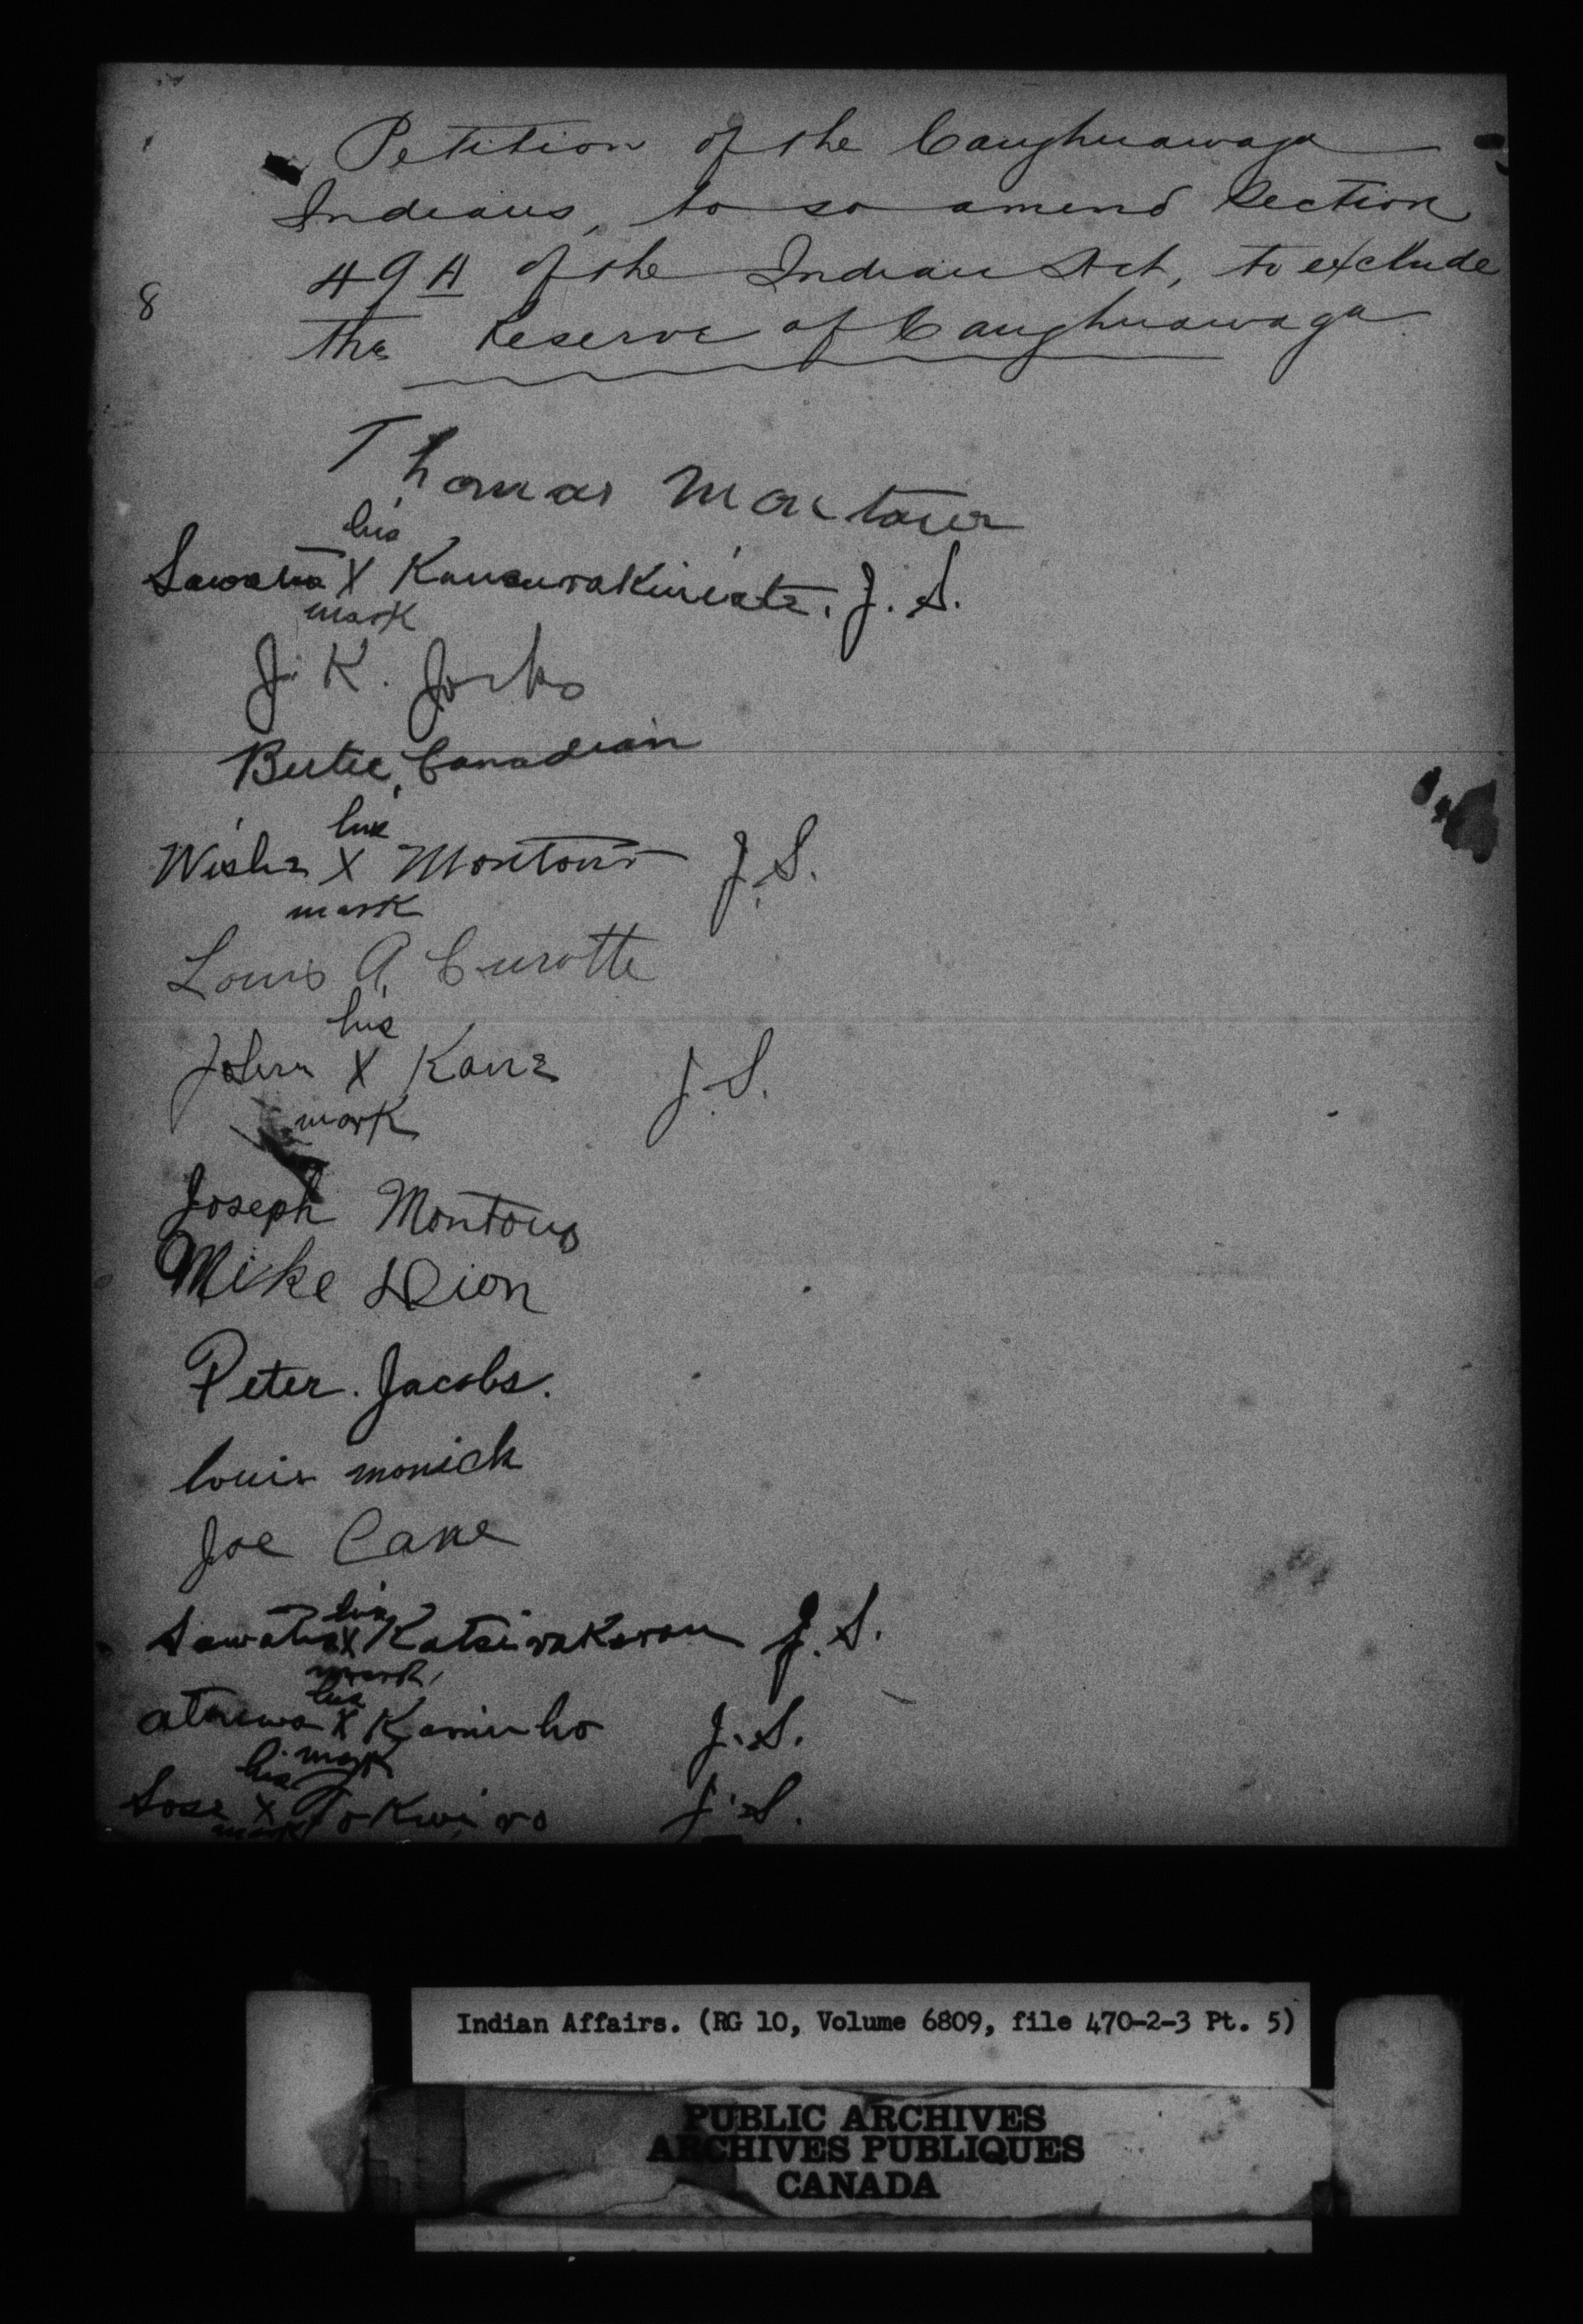 Petition of the Caughnawaga
Indians, to so amend Section
49A of the Indian Act, to exclude
8
the Reserve of Caughnawaga
Thomas Montour
his
Sawatis X J. S.
mark
J. K. Jocks
Canadian
his
Wishe X Montour J. S.
mark
Louis A. Curotte
his
John X Kane J. S.
mark
Joseph Montour
Mike Dion
Peter. Jacobs.
louis monick
Joe Cane
his
Sawatis X J. S.
mark
his
X J. S.
mark
his
Sose X J. S.
mark
Indian Affairs. (RG 10, Volume 6809, file 470-2-3 Pt. 5)
PUBLIC ARCHIVES
ARCHIVES PUBLIQUES
CANADA